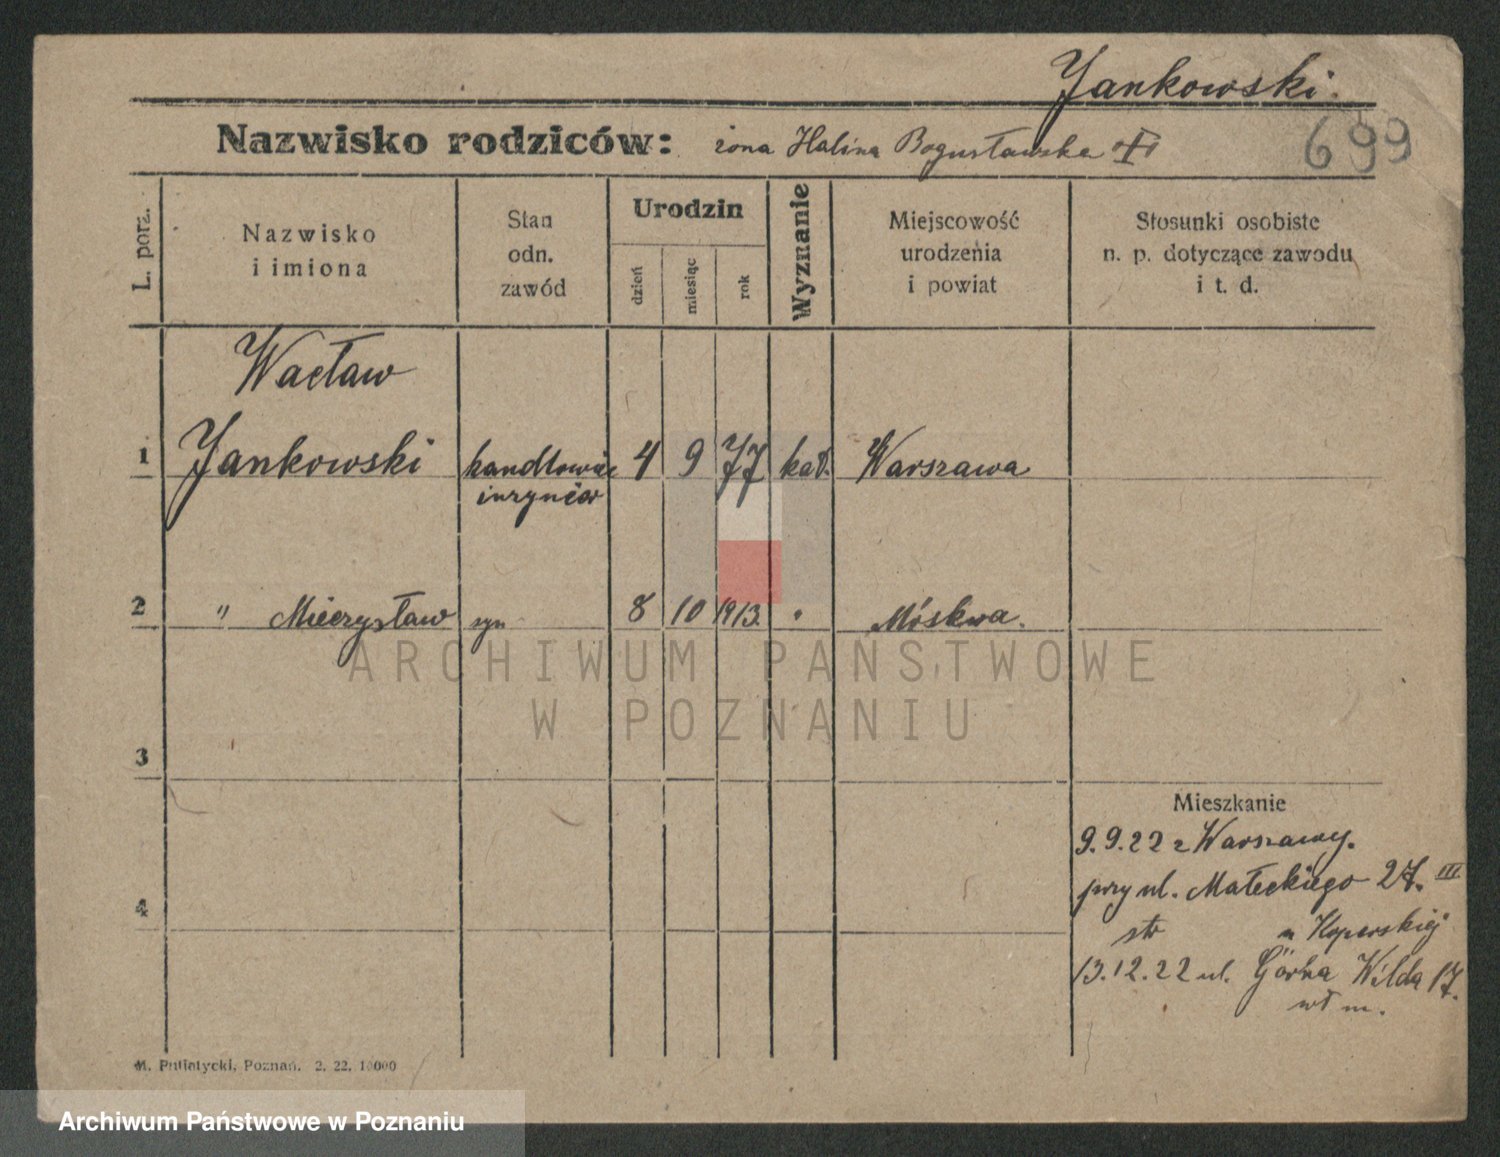 Jankowski.
Nazwisko rodziców: żona Halina Bogusławska
699
L. porz.
Nazwisko
i imiona
Stan
odn.
zawód
Urodzin
dzień
miesiąc
rok
Wyznanie
Miejscowość
urodzenia
i powiat
Stosunki osobiste
n. p. dotyczące zawodu
i t. d.
Wacław
1 Jankowski handlowiec 4 9 77 kat. Warszawa
inżynier
2 " Mieczysław syn 8 10 1913. " Móskwa.
ARCHIWUM PAŃSTWOWE
W POZNANIU
3
Mieszkanie
9.9.22 z Warszawy.
przy ul. Małeckiego 27. III
4
str u Koperskiej
13.12.22 ul. Górna Wilda 17.
wł m.
M. Putiatycki, Poznań. 2. 22. 10000
Archiwum Państwowe w Poznaniu